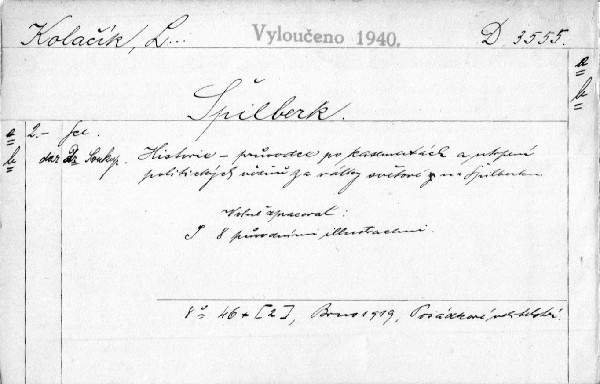 Kolačík, L... Vyloučeno 1940. D 3555.
a
b
Špilberk.
a 2.– fee.
b dar Dr Souky. Historie – průvodce po kasematách a utrpení
politických vězňů za války světové na Špilberku
Volně zpracoval:
S 8 původními illustracemi.
8° 46 + [2], Brno 1919,